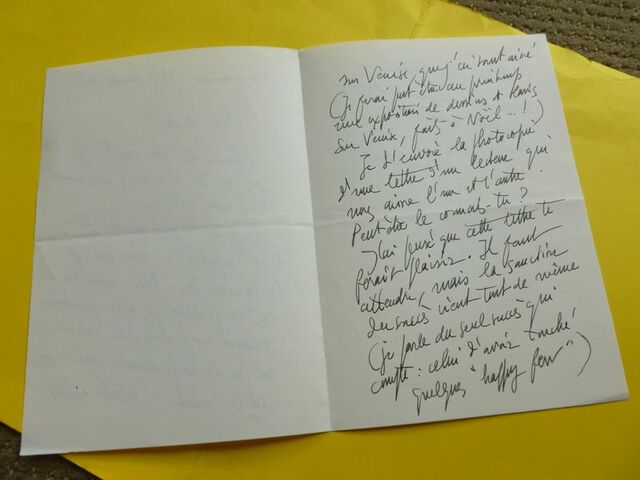 sur Venise, que j'ai tout aimé
(Je ferai peut-être au printemps
une exposition de dessins et lavis
sur Venise, faits à Noël...!)
Je t'envoie la photocopie
d'une lettre d'un lecteur qui
nous aime l'un et l'autre.
Peut-être le connais-tu ?
J'ai pensé que cette lettre te
ferait plaisir. Il faut
attendre, mais la sanction
du succès vient tout de même
(je parle du seul succès qui
compte : celui d'avoir touché
quelques "happy few")